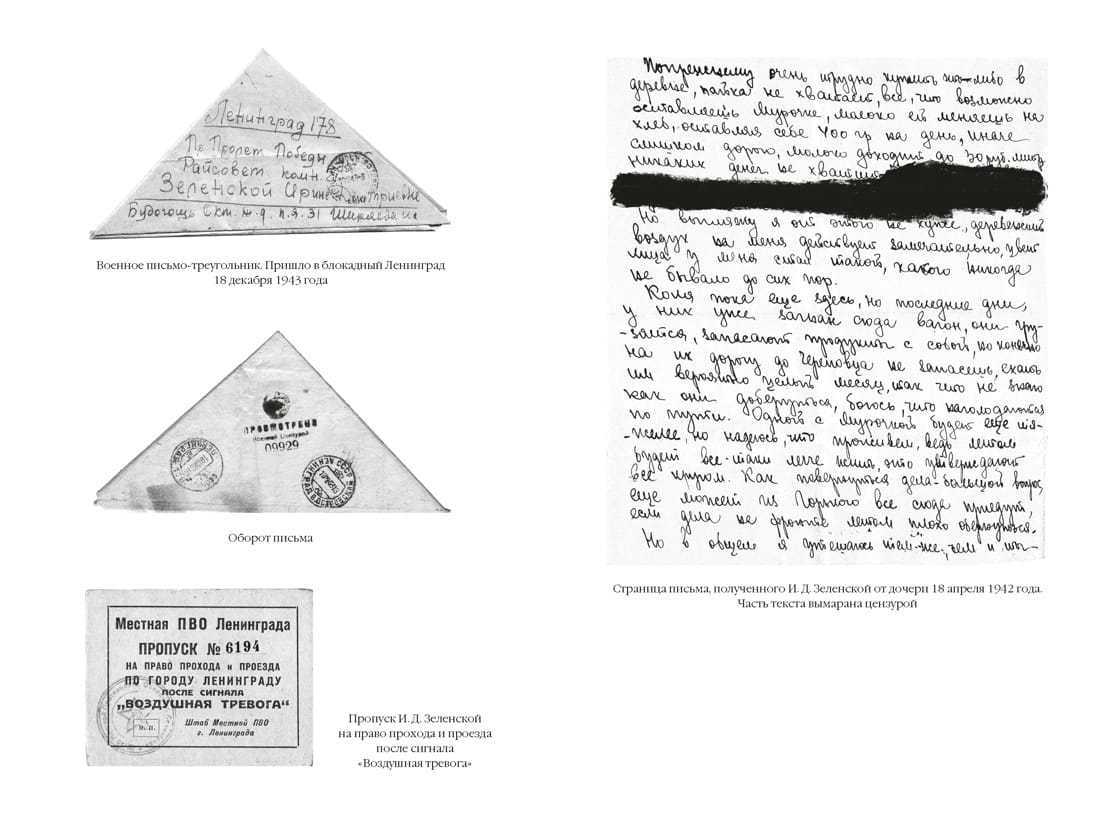 Ленинград 178
По Пролет. Победы
Райсовет комн.
Зеленской Ирине
Будогощь Окт. ж.д. п.я. 31
Военное письмо-треугольник. Пришло в блокадный Ленинград
18 декабря 1943 года
ПРОСМОТРЕНО
Военной Цензурой
09929
Оборот письма
Местная ПВО Ленинграда
ПРОПУСК № 6194
НА ПРАВО ПРОХОДА и ПРОЕЗДА
ПО ГОРОДУ ЛЕНИНГРАДУ
ПОСЛЕ СИГНАЛА
„ВОЗДУШНАЯ ТРЕВОГА“
Штаб Местной ПВО
г. Ленинграда
Пропуск И. Д. Зеленской
на право прохода и проезда
после сигнала
«Воздушная тревога»
Попрежнему очень трудно купить что-либо в
деревне, пайка не хватает, все, что возможно
оставляешь Мурочке, молоко ей меняешь на
хлеб, оставляя себе 400 гр на день, иначе
слишком дорого, молоко доходит до 30 руб. литр
никаких денег не хватит
Но выгляжу я от этого не хуже, деревенский
воздух на меня действует замечательно, цвет
лица у меня стал такой, какого никогда
не бывало до сих пор.
Коля пока еще здесь, но последние дни,
у них уже загнан сюда вагон, они гру-
-зятся, запасают продукты с собой, но конечно
на их дорогу до Череповца не запасешь, ехать
им вероятно целый месяц, так что не знаю
как они доберутся, боюсь, что наголодаются
по пути. Одной с Мурочкой будет еще тя-
-желее, но надеюсь, что проживем, ведь летом
будет все-таки легче жить, это утверждают
все кругом. Как повернутся дела-большой вопрос,
еще может из Горного все сюда приедут,
если дела на фронте летом плохо обернутся.
Но в общем я утешаюсь тем-же, чем и
Страница письма, полученного И. Д. Зеленской от дочери 18 апреля 1942 года.
Часть текста вымарана цензурой